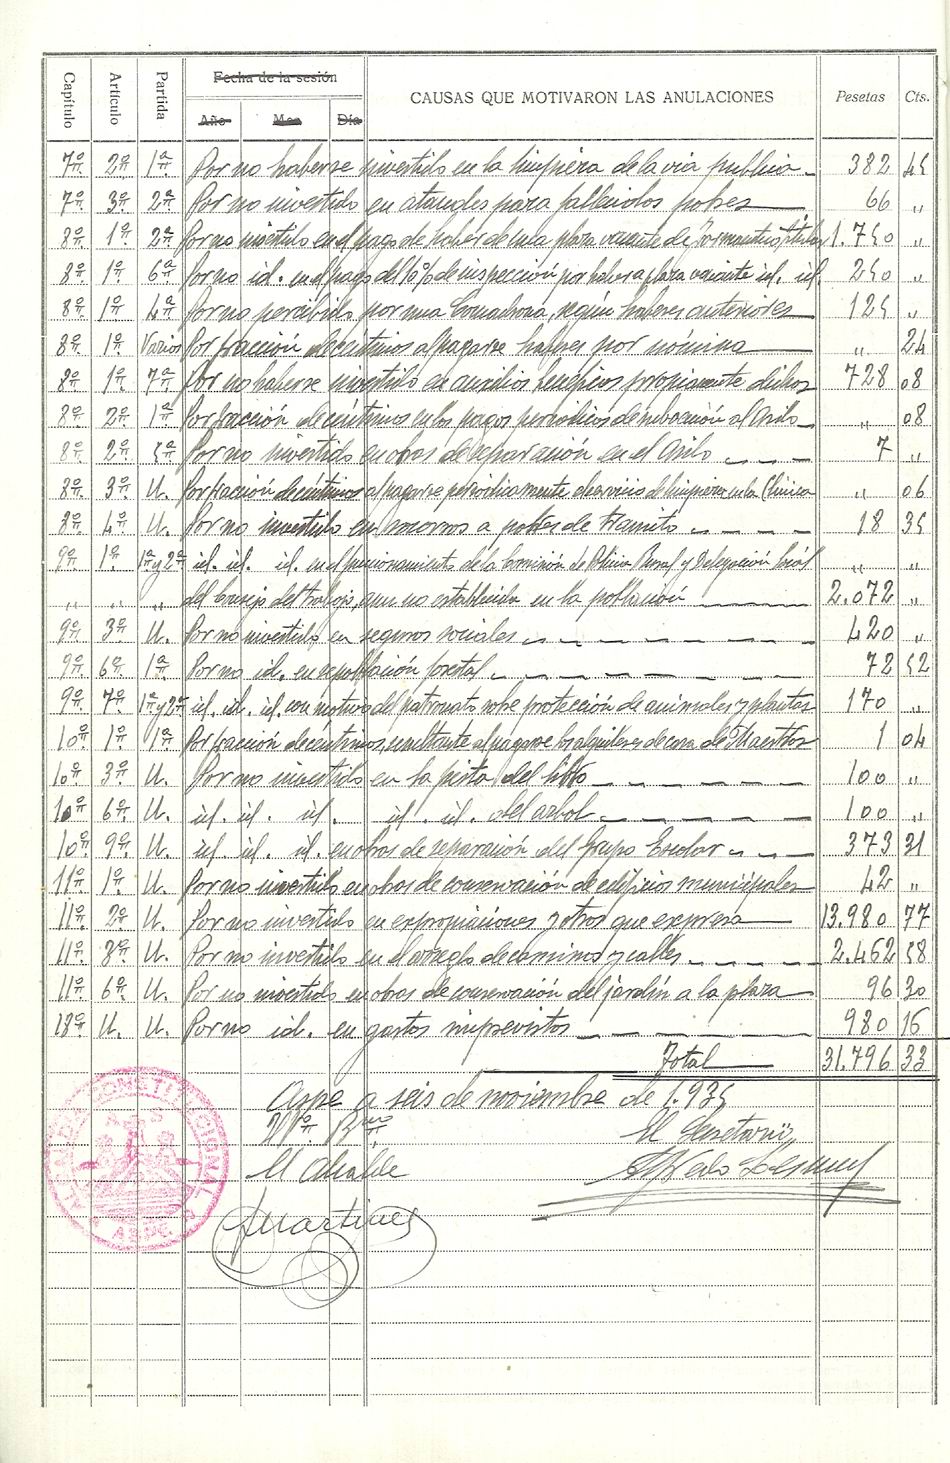 Capítulo Artículo Partida Fecha de la sesión CAUSAS QUE MOTIVARON LAS ANULACIONES Pesetas Cts.
Año Mes Día
7º 2º 1ª Por no haberse invertido en la limpieza de la via publica 382 45
7º 3º 2ª Por no invertido en ataudes para fallecidos pobres 66 „
8º 1º 2ª Por no invertido en el pago de haber de una plaza vacante de titular 1.750 „
8º 1º 6ª Por no id. en el pago del 10% de inspección por haber a plaza vacante id. id. 250 „
8º 1º 4ª Por no percibido por una Comadrona, según haberes anteriores 125 „
8º 1º Varios Por fracción de céntimos al pagarse haberes por nómina „ 24
8º 1º 7ª Por no haberse invertido de auxilios benéficos propiamente dichos 728 08
8º 2º 1ª Por fracción de céntimos en los pagos periódicos de subvención al Asilo „ 08
8º 2º 5ª Por no invertido en obras de reparación en el Asilo 7 „
8º 3º U. Por fracción de céntimos al pagarse periodicamente el servicio de limpieza en la Clínica „ 06
8º 4º U. Por no invertido en socorros a pobres de transito 18 35
9º 1º 1ª y 2ª id. id. id. en el funcionamiento de la Comisión de Policia Rural y Delegación local „ „
„ „ „ del Consejo del trabajo, aun no establecida en la población 2.072 „
9º 3º U. Por no invertido en seguros sociales 420 „
9º 6º 1ª Por no id. en repoblación forestal 72 52
9º 7º 1ª y 2ª id. id. id. con motivo del patronato sobre protección de animales y plantas 170 „
10º 1º 1ª Por fracción de centimos, resultante al pagarse los alquileres de casa de Maestros 1 04
10º 3º U. Por no invertido en la fiesta del libro 100 „
10º 6º U. id. id. id. id. id. del arbol 100 „
10º 9º U. id. id. id. en obras de reparación del Grupo Escolar 373 31
11º 1º U. Por no invertido en obras de conservación de edificios municipales 42 „
11º 2º U. Por no invertido en expropiaciones y otros que expresa 13.980 77
11º 3º U. Por no invertido en el arreglo de caminos y calles 2.462 58
11º 6º U. Por no invertido en obras de conservación del jardín a la plaza 96 30
18º U. U. Por no id. en gastos imprevistos 980 16
Total 31.796 33
Aspe a seis de noviembre de 1.935
Vº Bno
El Secretario,
El Alcalde
Martinez
ALCALDIA CONSTITUCIONAL
ASPE